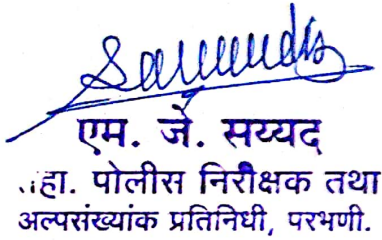 एम. जे. सय्यद
.हा. पोलीस निरीक्षक तथा
अल्पसंख्यांक प्रतिनिधी, परभणी.